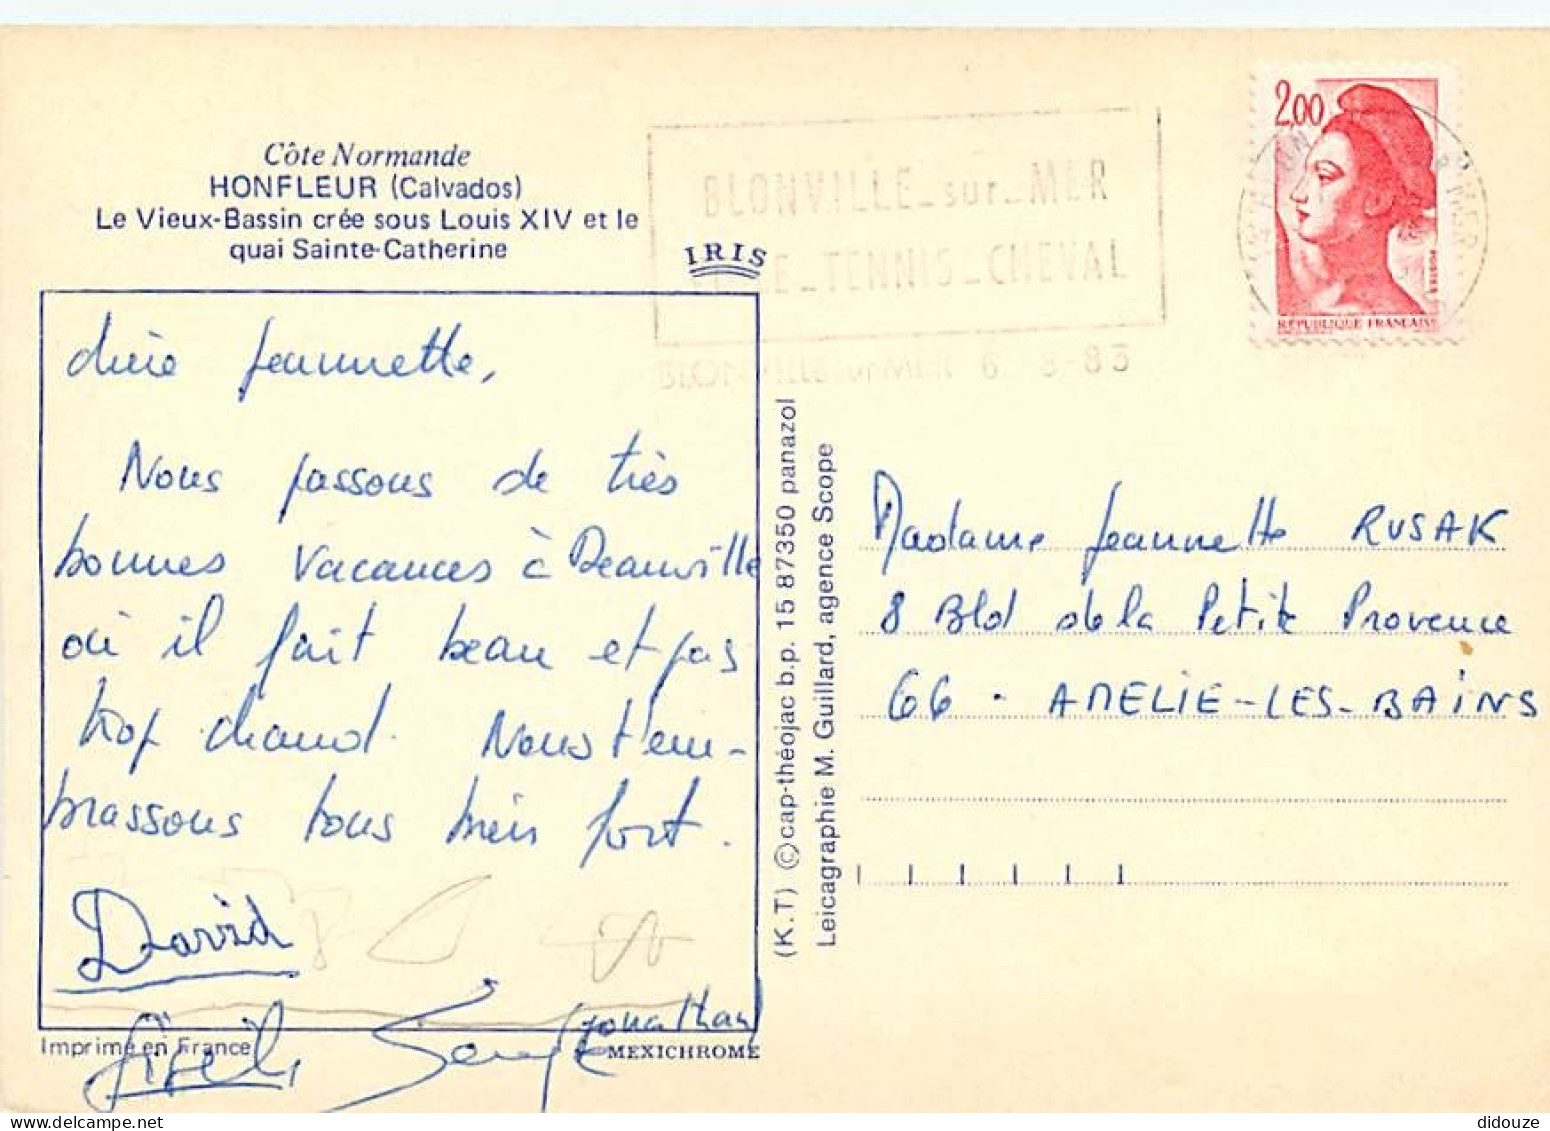 Côte Normande
HONFLEUR (Calvados)
Le Vieux-Bassin crée sous Louis XIV et le
quai Sainte-Catherine
IRIS
chère Jeannette,
Nous passons de très
bonnes vacances à Deauville
où il fait beau et pas
trop chaud. Nous t'em-
brassons tous très fort.
David
Gisèle Serge Jonathan
Imprimé en France
MEXICHROME
(K.T) © cap-théojac b.p. 15 87350 panazol
Leicagraphie M. Guillard, agence Scope
BLONVILLE_sur_MER
TENNIS_CHEVAL
BLONVILLE sur MER 6 8-83
2,00
POSTES
RÉPUBLIQUE FRANÇAISE
Madame Jeannette RUSAK
8 Bld de la Petite Provence
66 - AMELIE-LES-BAINS
didouze